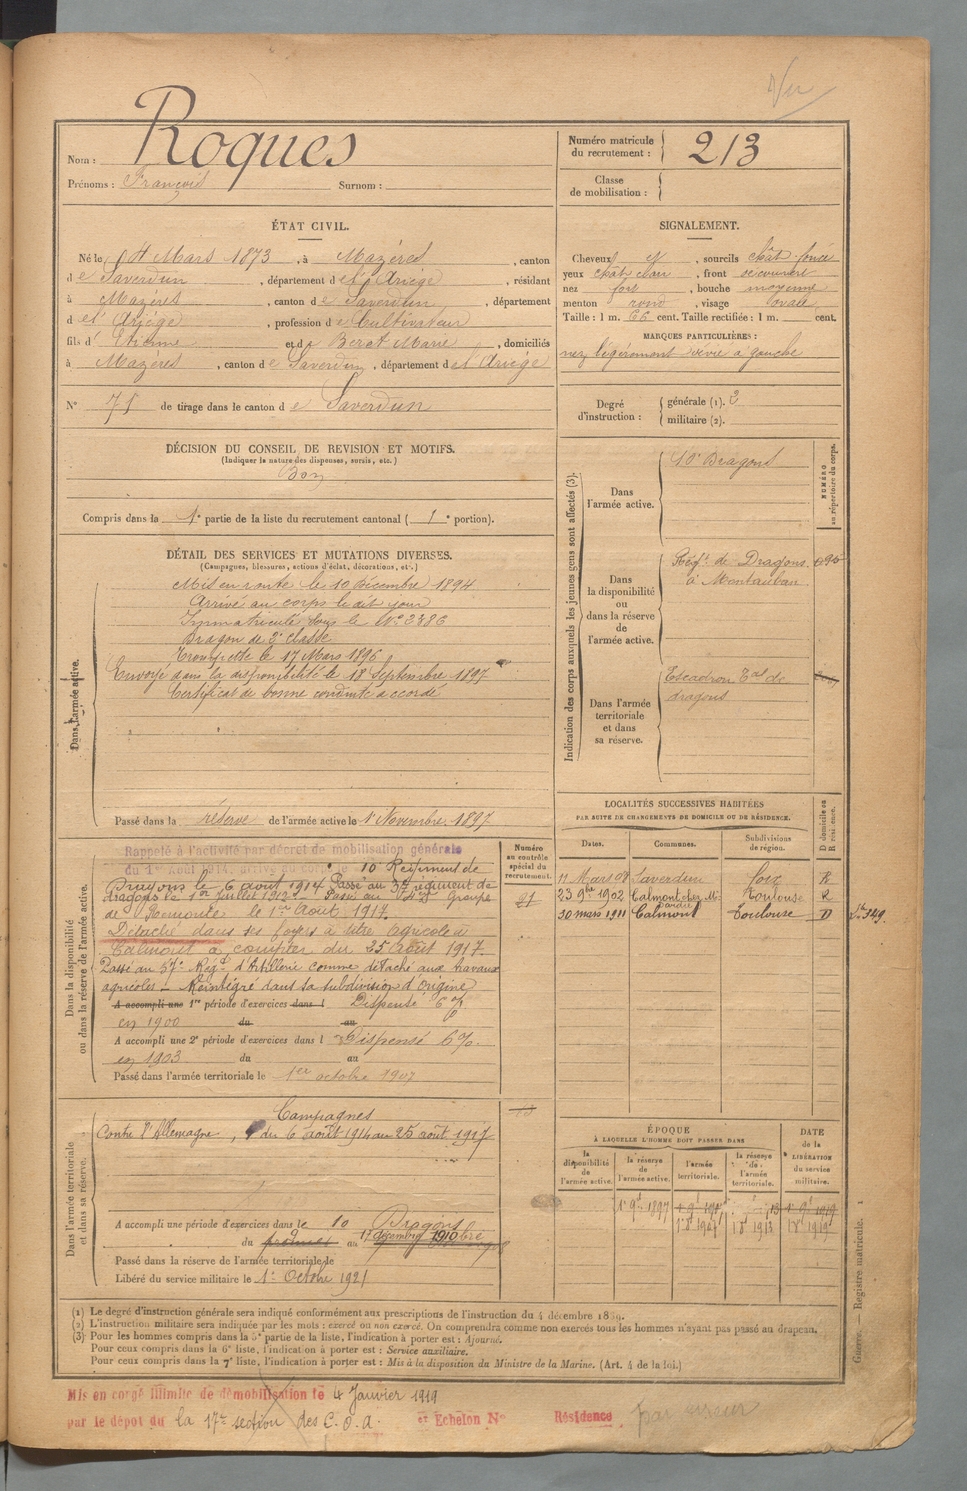 Vu
Nom : Roques
Prénoms : François Surnom :
Numéro matricule du recrutement : 213
Classe de mobilisation :
ÉTAT CIVIL.
Né le 4 Mars 1873, à Mazères, canton
de Saverdun, département de l'Ariège, résidant
à Mazères, canton de Saverdun, département
de l'Ariège, profession de Cultivateur
fils d'Etienne et de Berct Marie, domiciliés
à Mazères, canton de Saverdun, département de l'Ariège
N° 75 de tirage dans le canton de Saverdun
SIGNALEMENT.
Cheveux et, sourcils chât. foncé
yeux chât clair, front découvert
nez fort, bouche moyenne
menton rond, visage ovale
Taille : 1 m. 66 cent. Taille rectifiée : 1 m. cent.
MARQUES PARTICULIÈRES :
nez légèrement dévié à gauche
Degré d'instruction : générale (1). 3
militaire (2).
DÉCISION DU CONSEIL DE REVISION ET MOTIFS.
(Indiquer la nature des dispenses, sursis, etc.)
Bon
Compris dans la 1e partie de la liste du recrutement cantonal ( 1e portion).
DÉTAIL DES SERVICES ET MUTATIONS DIVERSES.
(Campagnes, blessures, actions d'éclat, décorations, etc.)
Dans l'armée active.
Mis en route le 10 Décembre 1894
Arrivé au corps le dit jour
Immatriculé sous le N° 2386
Dragon de 2e classe
Trompette le 17 Mars 1896
Envoyé dans la disponibilité le 18 Septembre 1897
Certificat de bonne conduite accordé
Passé dans la réserve de l'armée active le 1er Novembre 1897
Indication des corps auxquels les jeunes gens sont affectés (3).
NUMÉRO au répertoire du corps.
Dans l'armée active.
10e Dragons
Dans la disponibilité ou dans la réserve de l'armée active.
Régt. de Dragons
à Montauban
Dans l'armée territoriale et dans sa réserve.
Escadron Tal de
dragons
LOCALITÉS SUCCESSIVES HABITÉES
PAR SUITE DE CHANGEMENTS DE DOMICILE OU DE RÉSIDENCE.
Dates. Communes. Subdivisions de région. D domicile ou R résidence.
11 Mars 08 Saverdun Foix R
23 9bre 1902 Calmont Toulouse R
30 mars 1911 Calmont Toulouse D
Dans la disponibilité ou dans la réserve de l'armée active.
Numéro au contrôle spécial du recrutement.
Rappelé à l'activité par décret de mobilisation générale
du 1er Août 1914, arrivé au corps le 10 Régiment de
Dragons le 6 août 1914 Passé au régiment de
dragons le 1er juillet Passé au Groupe
de Remontes le 1er Août 1917.
Détaché dans ses foyers à titre agricole à
Calmont à compter du 25 août 1917.
Passé au 57e Régt d'Artillerie comme détaché aux travaux
agricoles - Réintégré dans sa subdivision d'origine
A accompli une 1re période d'exercices dans l Dispensé 6%
en 1900 du au
A accompli une 2e période d'exercices dans l Dispensé 6%.
en 1903 du au
Passé dans l'armée territoriale le 1er octobre 1907
Dans l'armée territoriale et dans sa réserve.
Campagnes
Contre l'Allemagne, du 6 août 1914 au 25 août 1917
A accompli une période d'exercices dans le 10 Dragons
du 9 au 17 décembre 1910
Passé dans la réserve de l'armée territoriale le
Libéré du service militaire le 1er Octobre 1921
ÉPOQUE
À LAQUELLE L'HOMME DOIT PASSER DANS
la disponibilité de l'armée active. la réserve de l'armée active. l'armée territoriale. la réserve de l'armée territoriale. DATE de la LIBÉRATION du service militaire.
Guerre. — Registre matricule. 1
(1) Le degré d'instruction générale sera indiqué conformément aux prescriptions de l'instruction du 4 décembre 1889.
(2) L'instruction militaire sera indiquée par les mots : exercé ou non exercé. On comprendra comme non exercés tous les hommes n'ayant pas passé au drapeau.
(3) Pour les hommes compris dans la 5e partie de la liste, l'indication à porter est : Ajourné.
Pour ceux compris dans la 6e liste, l'indication à porter est : Service auxiliaire.
Pour ceux compris dans la 7e liste, l'indication à porter est : Mis à la disposition du Ministre de la Marine. (Art. 4 de la loi.)
Mis en congé illimité de démobilisation le 4 Janvier 1919
par le dépôt du la 17e section des C.O.A. et Echelon N° Résidence par erreur